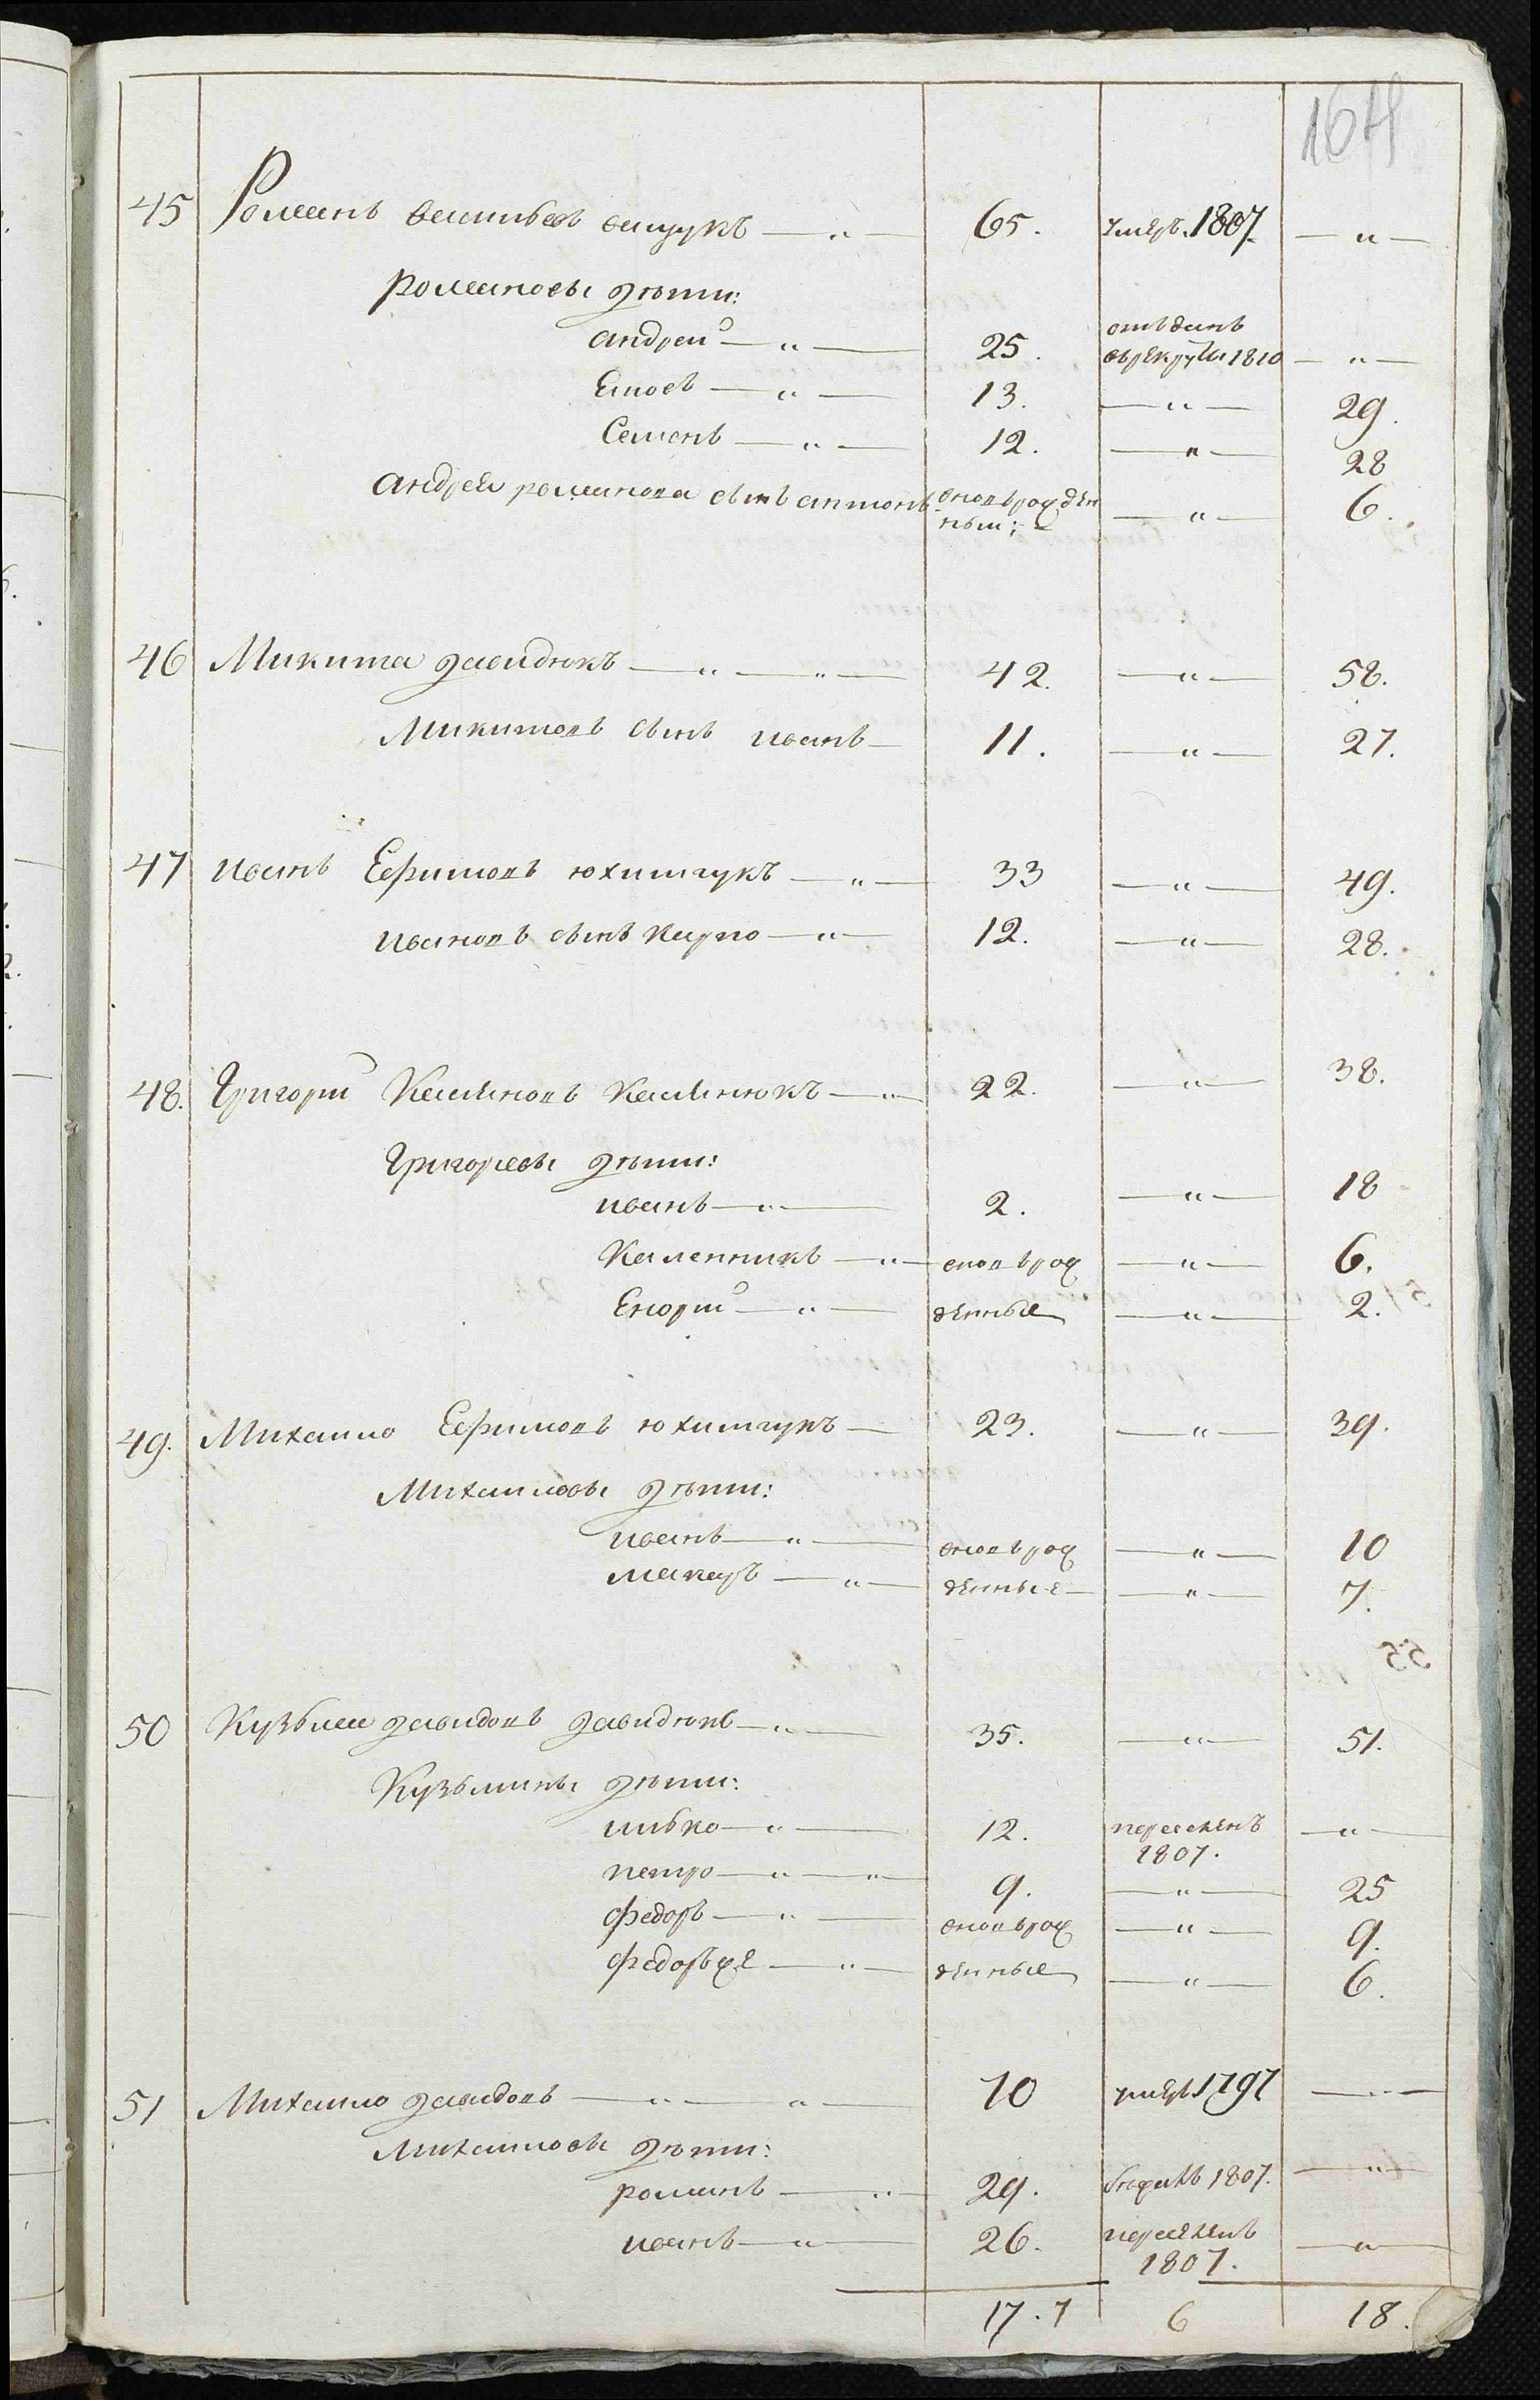 164
45 Романъ васильевъ ващукъ — „ — 65. умеръ. 1807. — „ —
Романовы дѣти:
андрей — „ — 25. отъданъ
въ рекруты 1810 — „ —
13. — „ — 29.
Семенъ — „ — 12. — „ — 28
андрея романова сынъ антонъ вновь рожден
ный; — „ — 6.
46 Микита давидюкъ — „ — „ — 42. — „ — 58.
Микитовъ сынъ иванъ — 11. — „ — 27.
47 иванъ Ефимовъ юхимчукъ — „ — 33 — „ — 49.
ивановъ сынъ карпо — „ — 12. — „ — 28.
48. Григорий Касяновъ Касянюкъ — „ — 22. — „ — 38.
Григорьевы дѣти:
иванъ — „ — 2. — „ — 18
Каленникъ — „ — вновь рож — „ — 6.
Егорий — „ — денные — „ — 2.
49. Михайло Ефимовъ юхимчукъ — 23. — „ — 39.
Михайловы дѣти:
иванъ — „ — вновь рож — „ — 10
макаръ — „ — денные — „ — 7.
50 Кузьма давидовъ давидюкъ — „ — 35. — „ — 51.
Кузьмины дѣти:
илько — „ — 12. переселенъ — „ —
1807.
петро — „ — „ — 9. — „ — 25
федоръ — „ — вновь рож — „ — 9.
федоръ же — „ — денные — „ — 6.
51 Михайло давидовъ — „ — „ — 70 умеръ 1797 — „ —
Михайловы дѣти:
романъ — „ — 29. бѣжалъ 1807. — „ —
иванъ — „ — 26. переселенъ — „ —
1807.
17. 7 6 18.